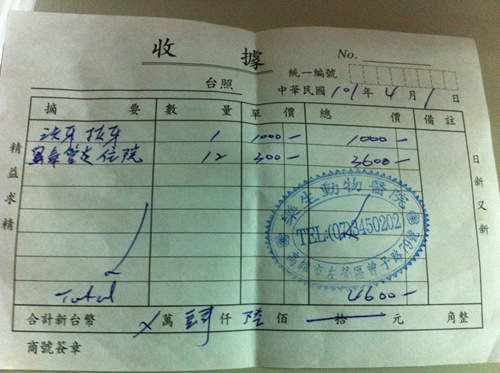 收據
No.
台照
統一編號
中華民國 101 年 4 月 1 日
摘要 數量 單價 總價 備註
洗牙拔牙 1 1000- 1000-
住院 12 300- 3600-
精益求精
日新又新
樂生動物醫院
TEL:(07)3450202
高雄市左營區曾子路79號
Total 4600-
合計新台幣 X 萬 肆 仟 陸 佰 拾 元 角整
商號簽章